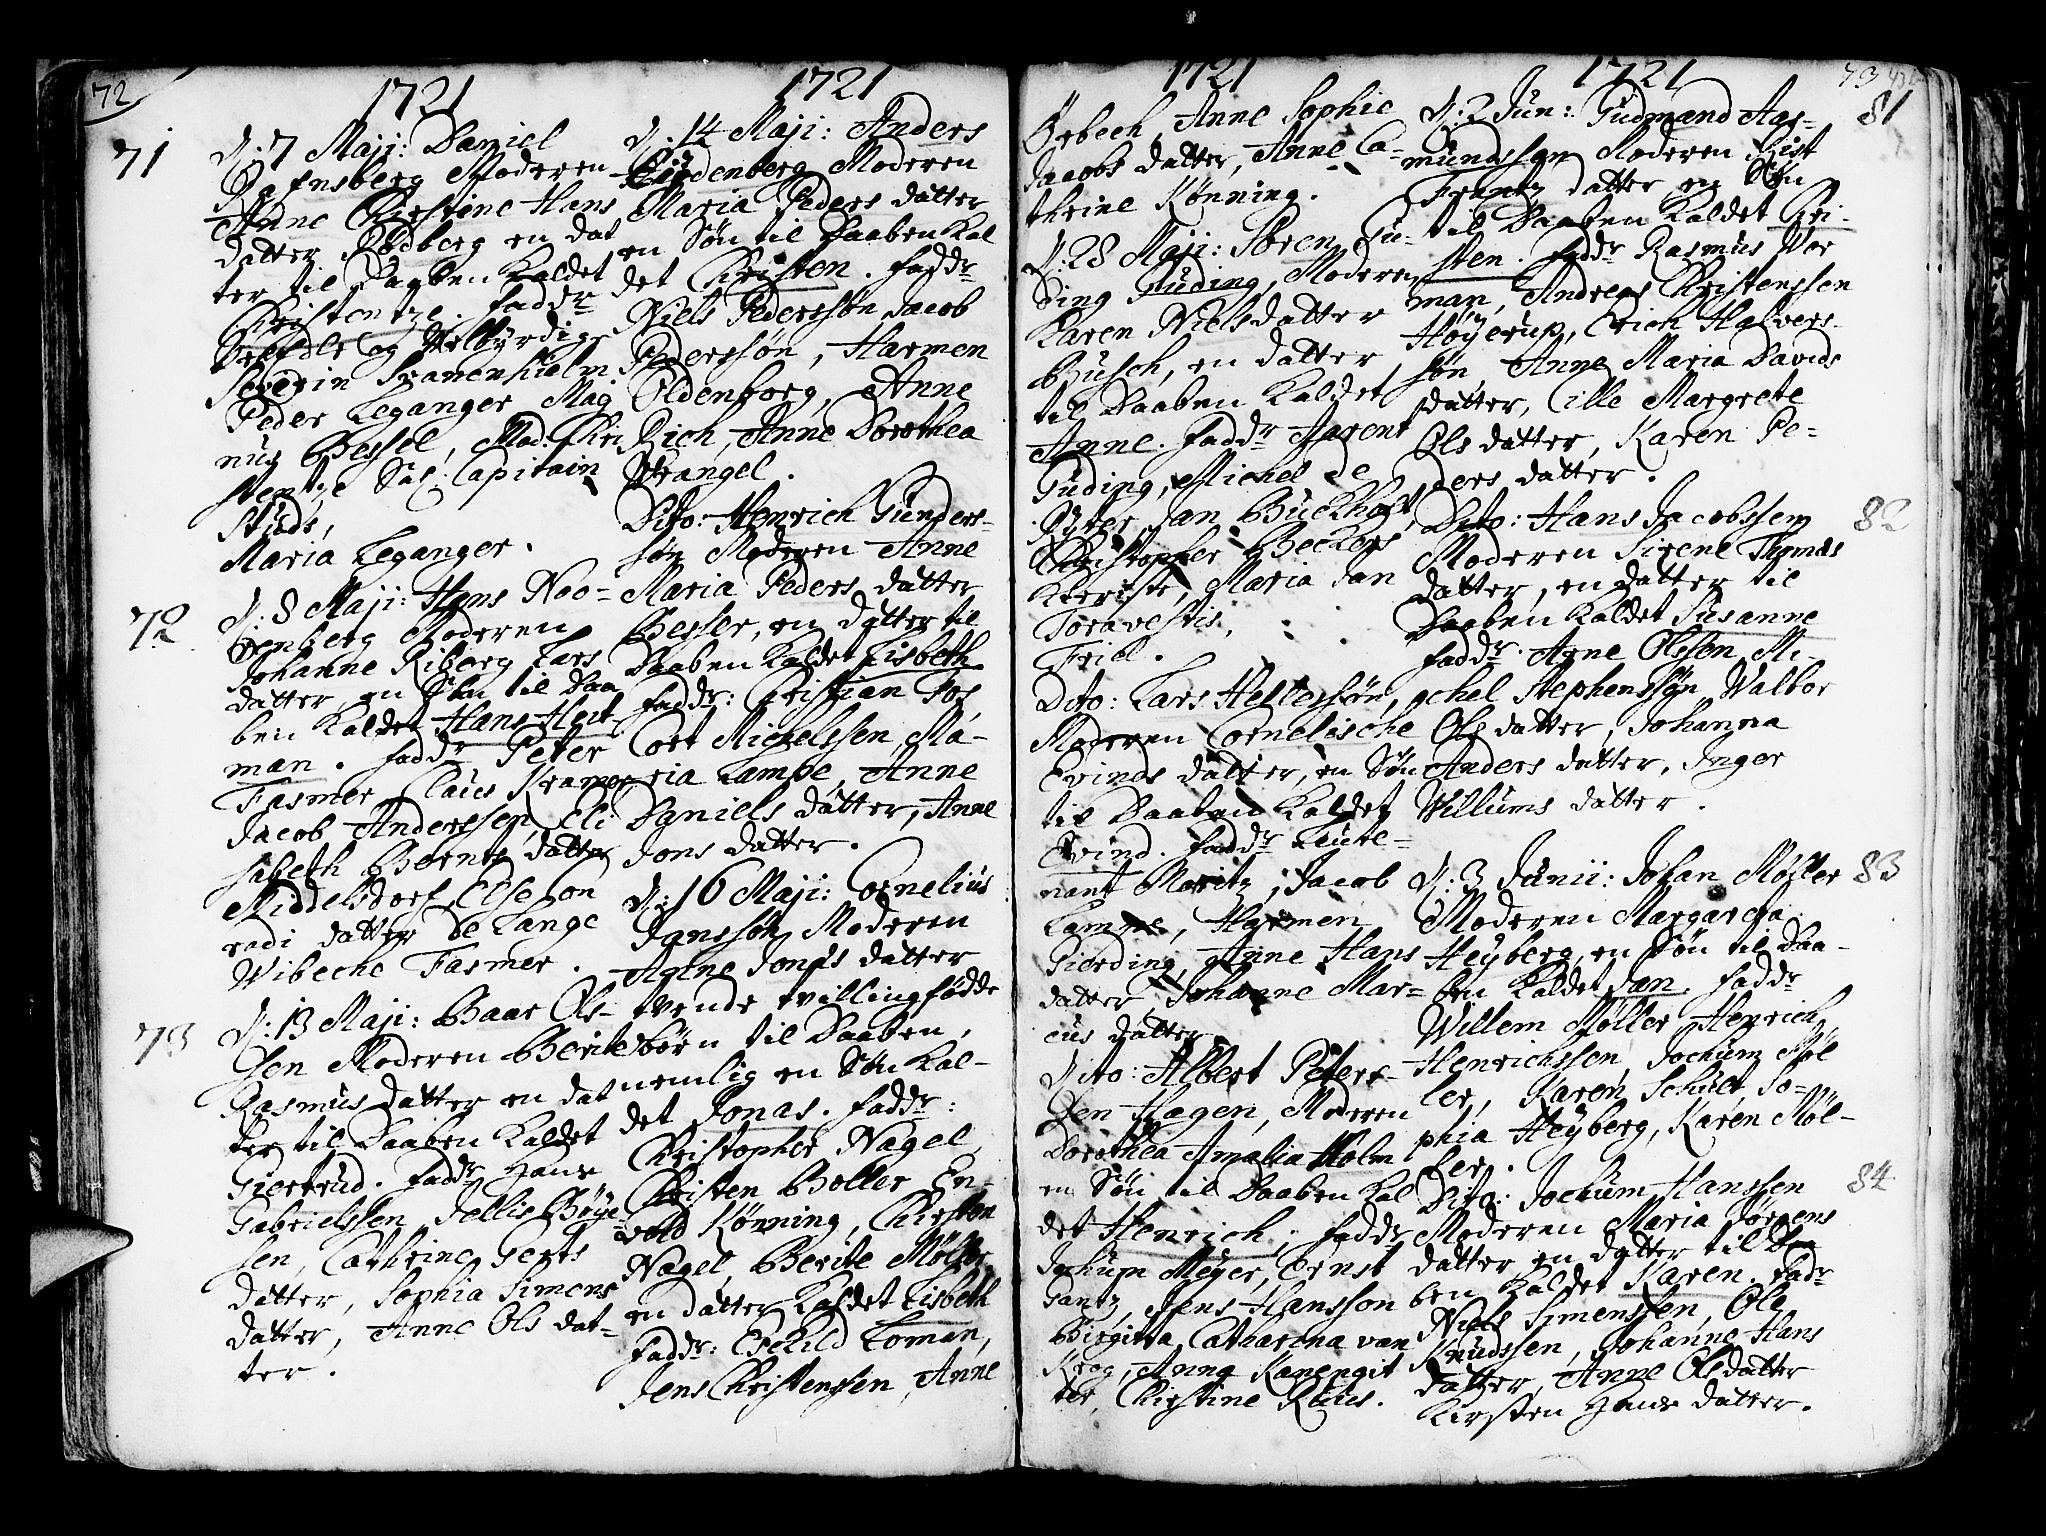 72
1721
71
d: 7 Maji: Daniel
Rafnsberg Moderen
Anne Chirstine Hans
datter Rødberg en dat
ter til Daaben Kaldet
Christentze. Faddr
og Velbyrdige
Severin Svanenhielm
Peder Leganger Mag
nus Bessel, Mad. Chri
stentze Sal: Capitain
Studs,
Maria Leganger.
72
d: 8 Maji: Hans Noo=
renberg Moderen
Johanne Riberg Lars
datter en Søn til Daa
ben Kaldet Hans Hert
man. Faddr Peter
Fasmer Claus Kramer
Jacob Anderssen Eli
sabeth Bernts datter
Middelsdorf Else Con
radi datter de Lange
Wibeche Fasmer.
73
d: 13 Maji: Baar Ols-
sen Moderen Berite
Rasmus datter en dat
ter til Daaben Kaldet
Giertrud. Faddr Hans
Gabrielssen Jellis Bøye
sen, Cathrine Gerts
datter, Sophia Simens
datter, Anne Ols dat=
ter.
1721
d: 14 Maji: Anders
Moderen
Maria Peders datter
en Søn til Daaben Kal
det Christen. Faddr
Niels Pederssøn Jacob
Pederssøn, Harmen
Oldenborg, Anne
Rich, Anne Dorothea
Wrangel.
Dito: Henrich Gunders-
søn Moderen Anne
Maria Peders datter
Besser, en datter til
Daaben Kaldet Lisbeth
Faddr: Christian Fos
Cort Michelssen Ma-
ria Lampe, Anne
Daniels datter, Anne
Jons datter.
d: 16 Maji: Cornelius
Janssøn Moderen
Agtne Jones datter
tvende tvillingfødde
børn til Daaben,
nemlig en Søn Kal-
det Jonas. Faddr:
Christopher Nagel,
Christen Boller En-
vold Kønning, Chirsten
Nagel, Berite Møller
en datter Kaldet Lisbeth
Faddr: Eschild Loman,
Jens Christenssen, Anne
1721
Ørbech, Anne Sophie
Jacobs datter, Anne Ca=
thrine Kønning.
d: 28 Maji: Søren Gu-
ding Guding, Moderen
Karen Niels datter
Busch, en datter
til Daaben Kaldet
Anne. Faddr Harent
Guding, Michel de
Jan Buckholt,
Christopher Beckers
Maria Jan
Toravestis,
Friel.
Dito: Lars Hellessøn,
Moderen Cornelische
Evinds datter, en Søn
til Daaben Kaldet
Evind. Faddr Leute=
nant Moritz, Jacob
Lampe, Harmen
Gierding, Anne Hans
datter Johanne Mar=
cus datter
Dito: Albert Peters-
sen Hagen, Moderen
Dorothea Amalia Holm
en Søn til Daaben Kal
det Henrich; Faddr
Jochum Meyer, Ernst
Gantz, Jens Hansson
Birgitta Catharina van
Krog, Anna Kanengit
ter, Chirstine Ruus.
1721
73
81
d: 2 Jun: Gudmand Aas-
mundssøn Moderen Kist
Frantz datter en Søn
til Daaben Kaldet Chri-
sten. Faddr Rasmus Wor
man, Andreas Christenssen
Høyerup, Erich Halvers-
søn Anne Maria Davids
datter, Cille Margrete
Ols datter, Karen Pe-
ders datter.
82
Dito: Hans Jacobssen
Moderen Sirene Thomas
datter, en datter til
Daaben Kaldet Susanne
Faddr. Arne Olsson, Mi-
chel Stephenssøn Walbor
Ols datter, Johanna
Anders datter, Inger
Willums datter.
83
d: 3 Junii: Johan Møller
Moderen Margareta
Heyberg, en Søn til Daa-
ben Kaldet Jan. Faddr
Willem Møller, Henrich
Henrichssen, Jochum Møl
ler, Karen Schult, So-
phia Heyberg, Karen Møl-
ler.
84
Dito: Jochum Hanssen
Moderen Maria Jørgens
datter, en datter til Daa
ben Kaldet Karen. Fadr
Niels Simenssen, Ole
Knudssen, Johanne Hans
datter, Anne Ols datter
Kirsten Hans datter.